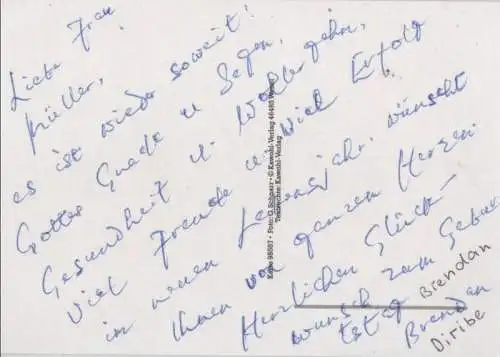 Liebe Frau
Müller,
es ist wieder soweit!
Gottes Gnade u Segen,
Gesundheit u. Wohlergehn,
viel Freude u. viel Erfolg
im neuen Lebensjahr, wünscht
Ihnen von ganzem Herzen.
Herzlichen Glück-
wunsch zum Gebur
tstag Brendan
Brendan
Diribe
Karte 98587 · Foto: G. Schwarz · © Kawohl-Verlag 46485 Wesel
Textrechte: Kawohl-Verlag